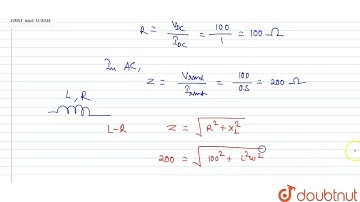 R = V_DC / I_DC = 100 / 1 = 100 Ω
In AC,
Z = V_rms / I_rms = 100 / 0.5 = 200 Ω
L, R
L-R Z = √(R² + X_L²)
200 = √(100² + L²ω²)
doubtnut